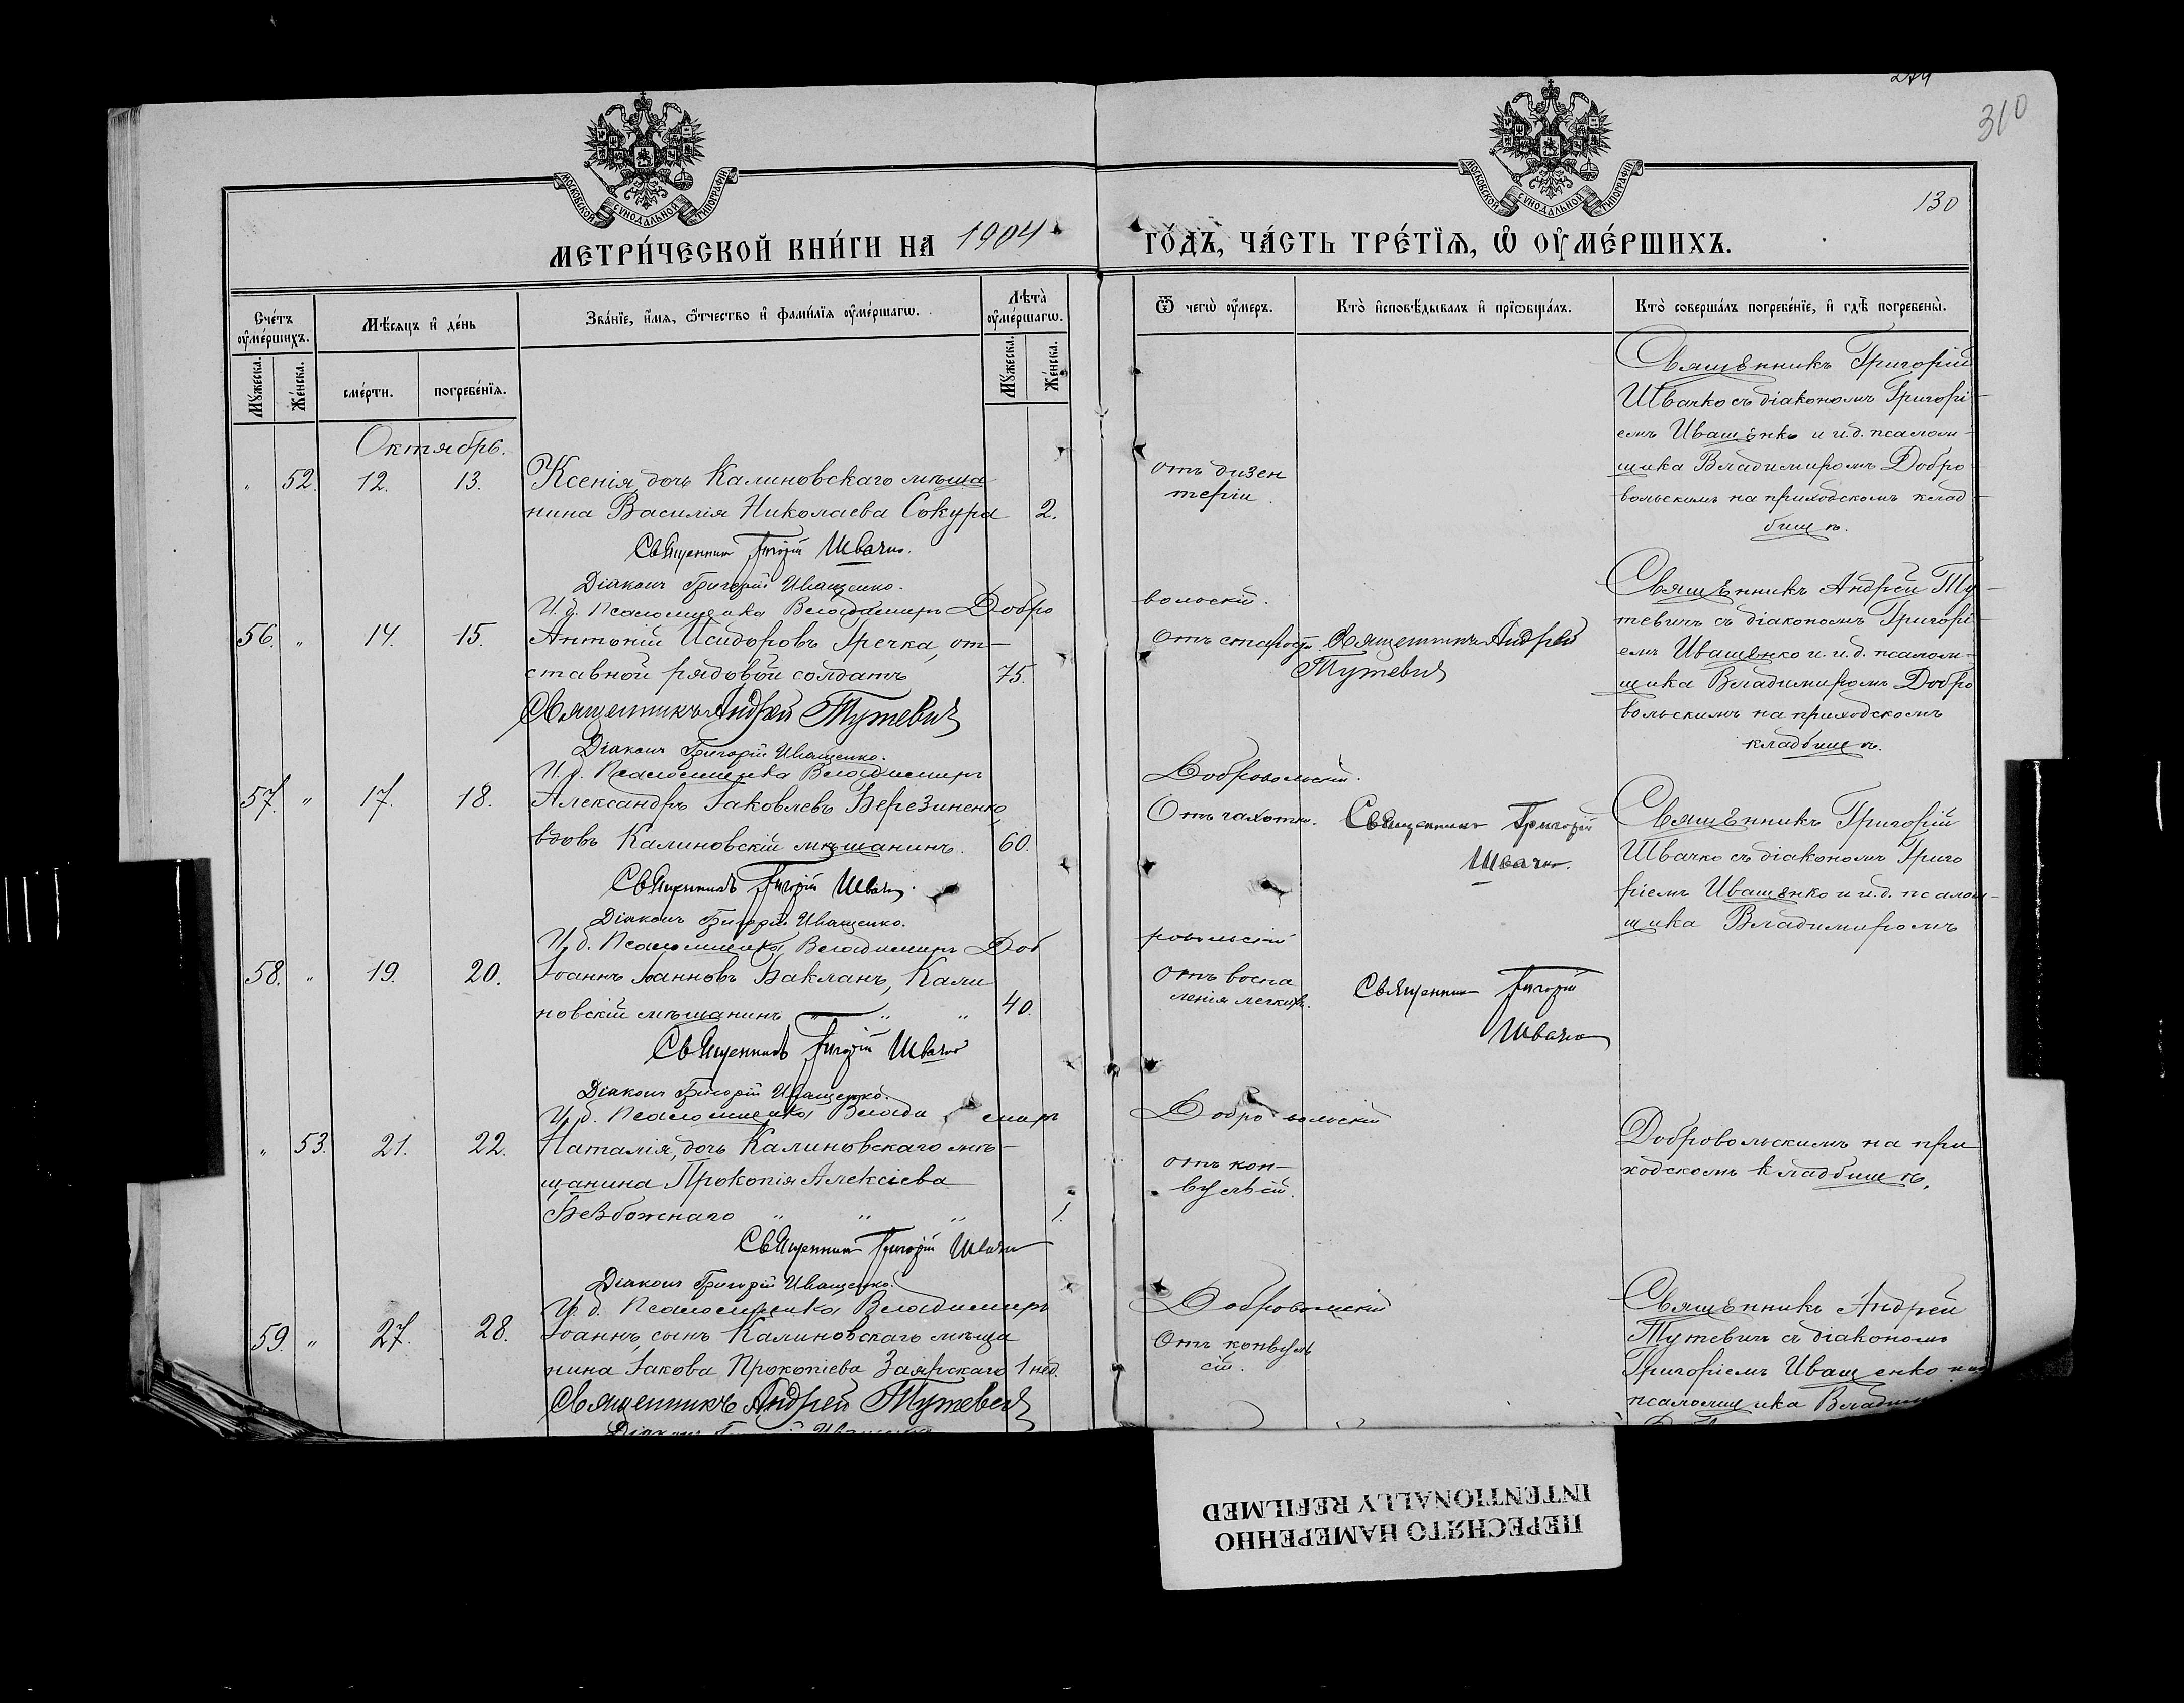 274
310
130
МОСКОВСКОЙ СУНОДАЛЬНОЙ ТИПОГРАФІИ
МОСКОВСКОЙ СУНОДАЛЬНОЙ ТИПОГРАФІИ
МЕТРИ́ЧЕСКОЙ КНИ́ГИ НА 1904
ГО́ДЪ, ЧА́СТЬ ТРЕ́ТЇѦ, Ѡ҆ ОУ҆МЕ́РШИХЪ.
Сче́тъ оу҆ме́ршихъ.
Мꙋжеска.
Же́нска.
Мѣ́сѧцъ и҆ де́нь
сме́рти.
погребе́нїѧ.
Зва́нїе, и҆́мѧ, ѻ҆́тчество и҆ фами́лїѧ оу҆ме́ршагѡ.
Лѣта̀ оу҆ме́ршагѡ.
Мꙋжеска.
Же́нска.
Ѿ чегѡ̀ оу҆́меръ.
Кто̀ и҆сповѣ́дывалъ и҆ прїѡбща́лъ.
Кто̀ соверша́лъ погребе́нїе, и҆ гдѣ̀ погребены̀.
Октябрь.
" 52. 12. 13. Ксенія, дочь Калиновскаго мѣща
нина Василія Николаева Сокура 2.
Священникъ Григорій Швачко.
Діаконъ Григорій Иващенко.
И. д. Псаломщика Владимиръ Добро
вольскій.
отъ дизен
теріи.
Священникъ Григорій
Швачко съ діакономъ Григорі-
емъ Иващенко и и.д. псалом-
щика Владимиромъ Добро-
вольскимъ на приходскомъ клад-
бищѣ.
56. " 14. 15. Антоній Исидоровъ Гречка, от-
ставной рядовой солдатъ 75.
Священникъ Андрей Тутевичъ
Діаконъ Григорій Иващенко.
И. д. Псаломщика Владимиръ
Добровольскій.
Отъ старости. Священникъ Андрей
Тутевичъ
Священникъ Андрей Ту-
тевичъ съ діакономъ Григорі-
емъ Иващенко и и.д. псалом-
щика Владимиромъ Добро
вольскимъ на приходскомъ
кладбищѣ.
57. " 17. 18. Александръ Іаковлевъ Березиненко,
вдовъ Калиновскій мѣщанинъ. 60.
Священникъ Григорій Швачко.
Діаконъ Григорій Иващенко.
И. д. Псаломщика Владимиръ Доб
ровольскій
Отъ чахотки. Священникъ Григорій
Швачко.
Священникъ Григорій
Швачко съ діакономъ Григо
ріемъ Иващенко и и.д. псалом-
щика Владимиромъ
58. " 19. 20. Іоаннъ Іоанновъ Бакланъ, Кали
новскій мѣщанинъ " " " 40.
Священникъ Григорій Швачко
Діаконъ Григорій Иващенко.
И. д. Псаломщика Влади миръ
Добровольскій
Отъ воспа
ленія легкихъ.
Священникъ Григорій
Швачко
" 53. 21. 22. Наталія, дочь Калиновскаго мѣ-
щанина Прокопія Алексіева
Безбожнаго " " " 1.
Священникъ Григорій Швачко
Діаконъ Григорій Иващенко.
И. д. Псаломщика Владимиръ
Добровольскій
отъ кон-
вульсій.
Добровольскимъ на при
ходскомъ кладбищѣ.
59. " 27. 28. Іоаннъ, сынъ Калиновскаго мѣща
нина Іакова Прокопіева Заярскаго 1 нед.
Священникъ Андрей Тутевичъ
Діаконъ Григорій Иващенко
Отъ конвуль
сій.
Священникъ Андрей
Тутевичъ съ діакономъ
Григоріемъ Иващенко
псаломщика
ПЕРЕСНЯТО НАМЕРЕННО
INTENTIONALLY REFILMED